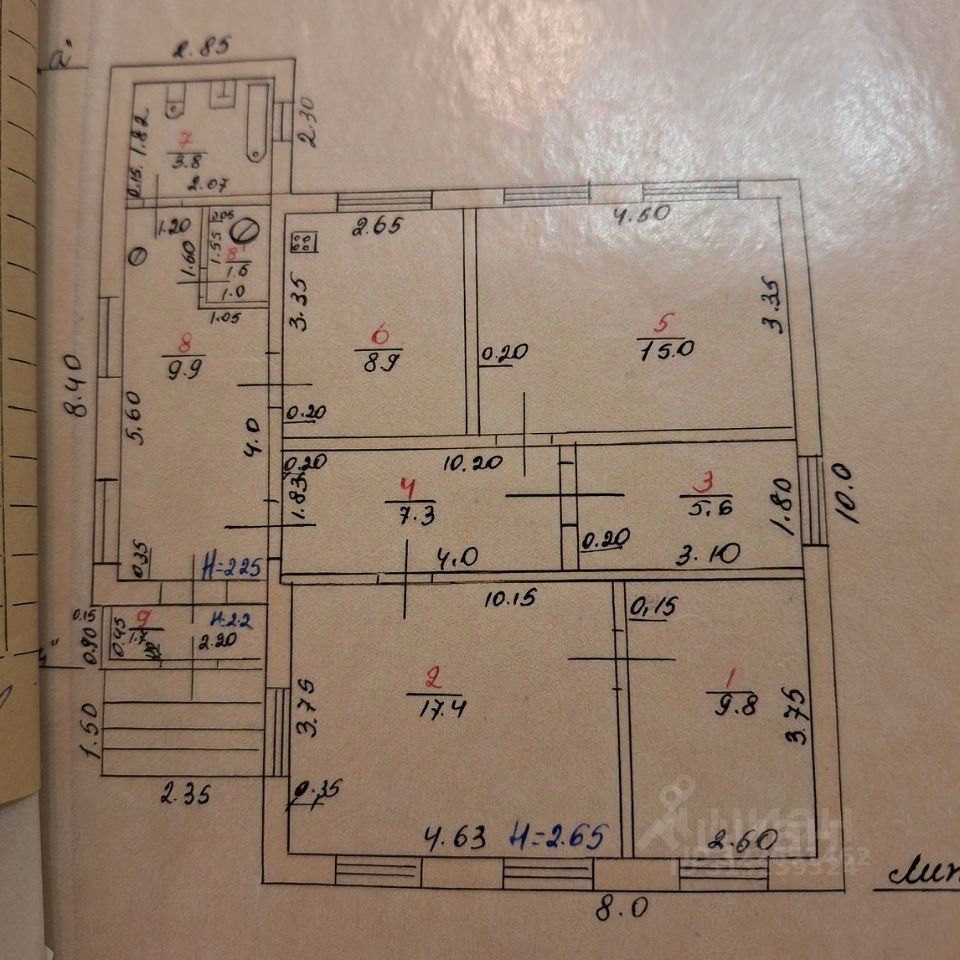 а'
2.85
1.82
7
3.8
2.30
0.15
2.07
1.20
0.05
2.65
4.50
1.55
1.60
8'
1.6
1.0
1.05
3.35
3.35
8
9.9
6
8.9
0.20
5
15.0
8.40
5.60
4.0
0.20
0.20
10.20
1.83
4
7.3
3
5.6
1.80
10.0
0.20
4.0
3.10
0.35
H=2.25
10.15
0,15
0.15
9
1.7
H=2.2
0.90
0.45
2.20
2
17.4
1
9.8
3.75
3.75
1.50
2.35
0.35
4.63
H=2.65
2.60
циан
8.0
Лит